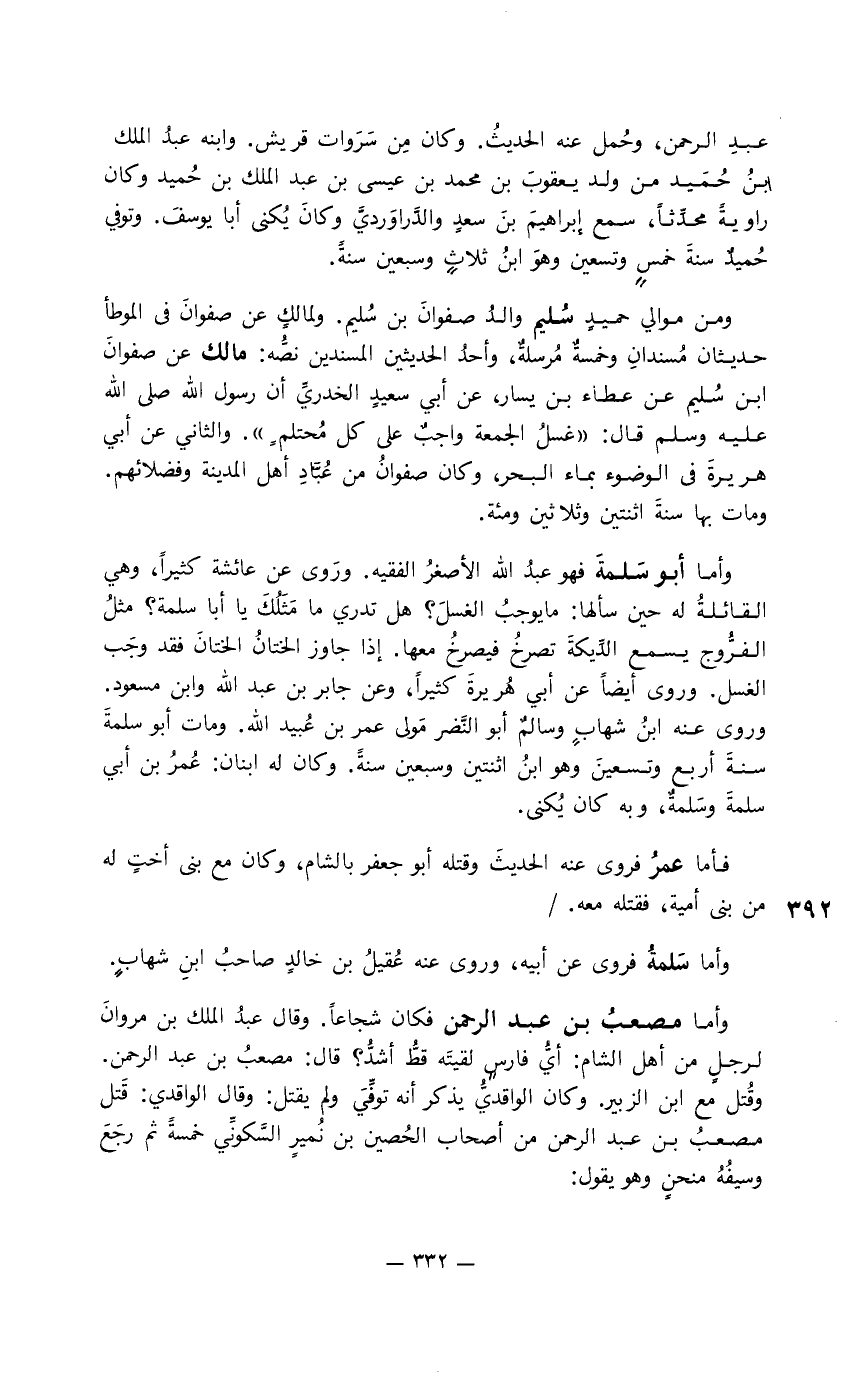 عبدِ الرحمن، وحُمل عنه الحديثُ. وكان مِن سَرَوات قريش. وابنه عبدُ الملك
ابنُ حُمَيد من ولد يعقوبَ بن محمد بن عيسى بن عبد الملك بن حُميد وكان
راويةً محدِّثاً، سمع إبراهيمَ بنَ سعدٍ والدَّراوَرديَّ وكانَ يُكنى أبا يوسفَ. وتوفي
حُميدٌ سنةَ خمسٍ وتسعين وهوَ ابنُ ثلاثٍ وسبعين سنةً.
ومن موالي حميدٍ سُليم والدُ صفوانَ بن سُليم. ولمالكٍ عن صفوانَ فى الموطأ
حديثان مُسندانِ وخمسةٌ مُرسلةٌ، وأحدُ الحديثين المسندين نصُّه: مالك عن صفوانَ
ابن سُليم عن عطاء بن يسار، عن أبي سعيدٍ الخدريِّ أن رسول الله صلى الله
عليه وسلم قال: «غسلُ الجمعة واجبٌ على كل مُحتلم». والثاني عن أبي
هريرةَ فى الوضوء بماء البحر، وكان صفوانُ من عُبَّادِ أهل المدينة وفضلائهم.
ومات بها سنةَ اثنتين وثلاثين ومئة.
وأما أبو سَلمةَ فهو عبدُ الله الأصغرُ الفقيه. ورَوى عن عائشة كثيراً، وهي
القائلةُ له حين سألها: مايوجبُ الغسلَ؟ هل تدري ما مَثَلُكَ يا أبا سلمة؟ مثلُ
الفرُّوج يسمع الدِّيكةَ تصرخُ فيصرخُ معها. إذا جاوز الختانُ الختانَ فقد وجَب
الغسل. وروى أيضاً عن أبي هُريرةَ كثيراً، وعن جابر بن عبد الله وابن مسعود.
وروى عنه ابنُ شهابٍ وسالمٌ أبو النَّضر مَولى عمر بن عُبيد الله. ومات أبو سلمةَ
سنةَ أربع وتسعينَ وهو ابنُ اثنتين وسبعين سنةً. وكان له ابنان: عُمرُ بن أبي
سلمةَ وسَلمةٌ، وبه كان يُكنى.
فأما عمرُ فروى عنه الحديثَ وقتله أبو جعفر بالشام، وكان مع بنى أختٍ له
من بنى أمية، فقتله معه. / ٣٩٢
وأما سَلمةُ فروى عن أبيه، وروى عنه عُقيلُ بن خالدٍ صاحبُ ابنِ شهابٍ.
وأما مصعبُ بن عبد الرحمن فكان شجاعاً. وقال عبدُ الملك بن مروانَ
لرجلٍ من أهل الشام: أيُّ فارسٍ لقيتَه قطُّ أشدُّ؟ قال: مصعبُ بن عبد الرحمن.
وقُتل مع ابن الزبير. وكان الواقديُّ يذكر أنه توفِّيَ ولم يقتل: وقال الواقدي: قَتل
مصعبُ بن عبد الرحمن من أصحاب الحُصين بن نُميرٍ السَّكونِّي خمسةً ثم رجَعَ
وسيفُهُ منحنٍ وهو يقول:
— ٣٣٢ —